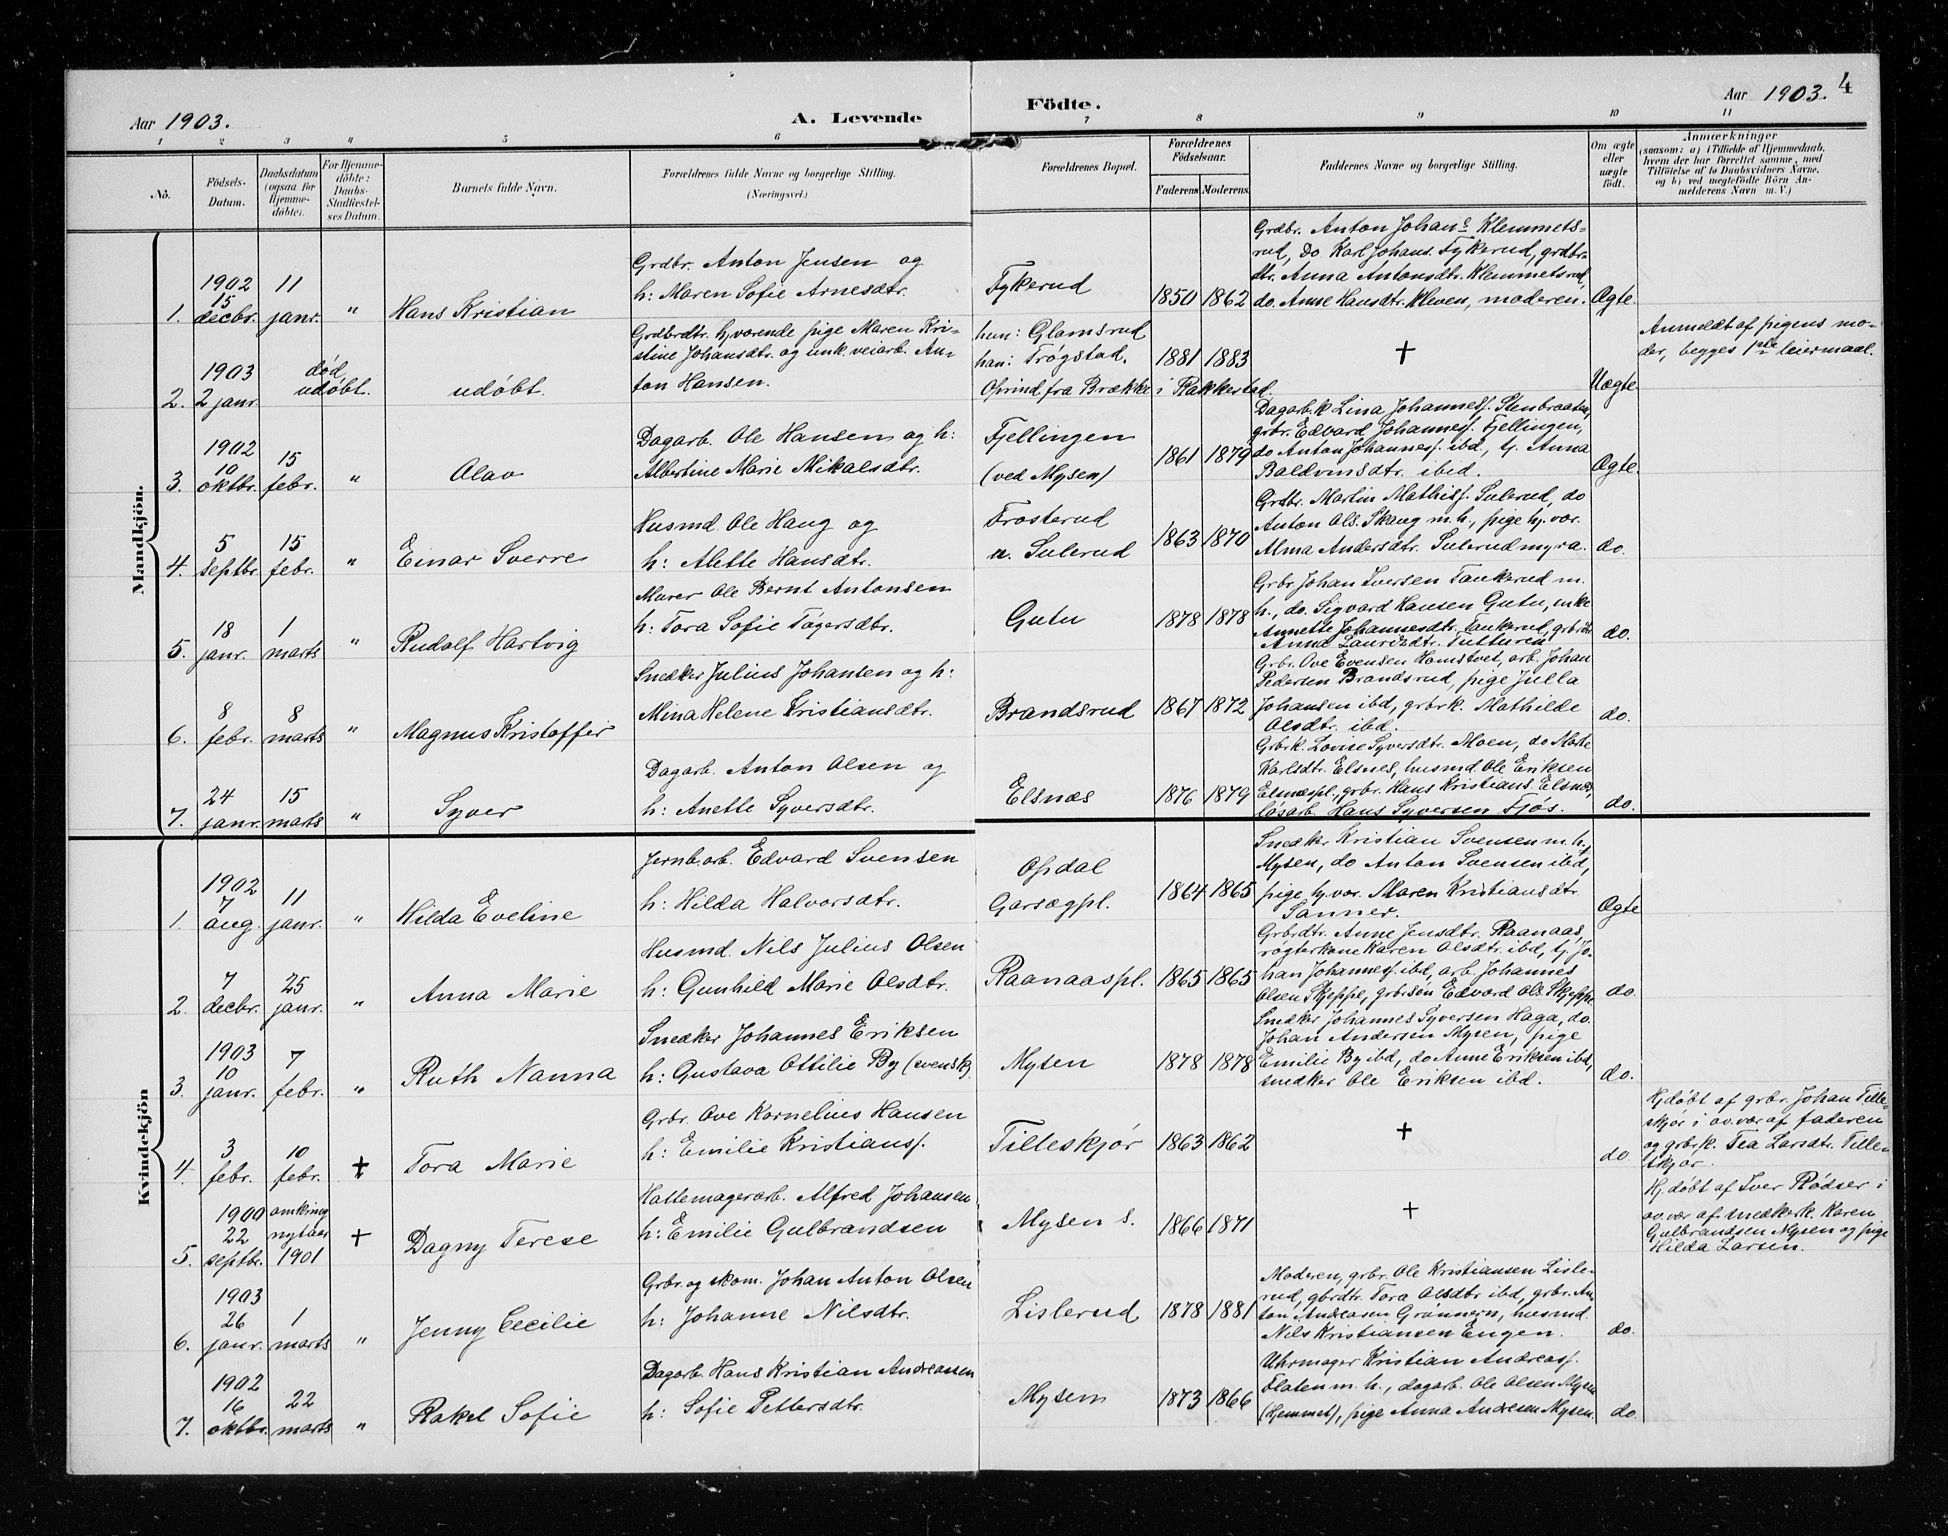 Aar 1903.
A. Levende
Födte.
Aar 1903.
4
1 2 3 4 5 6 7 8 9 10 11
No.
Födsels-
Datum.
Daabsdatum
(ogsaa for
Hjemme-
döbte).
For Hjemme-
döbte:
Daabs-
Stadfæstel-
ses Datum.
Barnets fulde Navn.
Forældrenes fulde Navne og borgerlige Stilling.
(Næringsvei.)
Forældrenes Bopæl.
Forældrenes
Födselsaar.
Faderens. Moderens.
Faddernes Navne og borgerlige Stilling.
Om ægte
eller
uægte
födt.
Anmærkninger
(saasom: a) i Tilfælde af Hjemmedaab,
hvem der har forrettet samme, med
Tilföielse af to Daabsvidners Navne,
og b) ved uægtefödte Börn An-
melderens Navn m. V.)
Mandkjön.
1.
1902
15
decbr.
11
janr.
"
Hans Kristian
Grdbr. Anton Jensen og
h: Maren Sofie Arnesdtr.
Fykerud
1850 1862
Grdbr. Anton Johans Klemmets-
rud, Do Karl Johans. Fykerud, grdbr-
dtr. Anna Antonsdtr. Klemmetsrud,
do. Anne Hansdtr. Kleven, moderen.
Ægte.
2.
1903
2 janr.
död
udöbt.
udöbt.
Grdbrdtr. hj.værende pige Maren Kri-
stine Johansdtr. og unk. veiarb. An-
ton Hansen.
hun: Glamsrud
han: Trögstad.
Oprind. fra Brække i Rakkestad.
1881 1883
+
Uægte
Anmeldt af pigens mo-
der, begges 1ste leiermaal.
3.
1902
10
oktbr.
15
febr.
"
Olav
Dagarb. Ole Hansen og h:
Albertine Marie Mikalsdtr.
Fjellingen
(ved Mysen)
1861 1879
Dagarb.k Lina Johannesf. Stenbraaten,
grbr. Edvard Johannesf. Fjellingen,
do Anton Johannesf. ibd, tj. Anna
Baldvinsdtr. ibid.
Ægte.
4.
5
septbr.
15
febr.
"
Einar Sverre
Husmd. Ole Haug og
h: Alette Hansdtr.
Frosterud
u. Sulerud
1863 1870
Grdbr. Martin Mathisf. Sulerud, do
Anton Ols. Skaug m.h., pige hj.vær.
Alma Andersdtr. Sulerudmyra.
do.
5.
18
janr.
1
marts
"
Rudolf Hartvig
Murer Ole Bernt Antonsen
h: Tora Sofie Tögersdtr.
Gutu
1878 1878
Grbr. Johan Iversen Taukerud m.
h., do. Sigvard Hansen Gutu, enke
Annette Johannesdtr. Taukerud, grbrdtr.
Anna Lauritzdtr. Tutturen.
do.
6.
8
febr.
8
marts
"
Magnus Kristoffer
Snedker Julius Johansen og h:
Mina Helene Kristiansdtr.
Brandsrud
1867 1872
Grbr. Ove Evensen Homstvet, arb. Johan
Pedersen Brandsrud, pige Julla
Johansen ibd, grbrk. Mathilde
Olsdtr. ibd.
do.
7.
24
janr.
15
marts
"
Syver
Dagarb. Anton Olsen og
h: Anette Syversdtr.
Elsnæs
1876 1879
Grbrk. Lovise Syversdtr. Moen, do Marte
Karlsdtr. Elsnes, husmd. Ole Eriksen
Elsnæspl., grbr. Hans Kristians. Elsnes,
lösarb. Hans Syversen Fjös.
do.
Kvindekjön
1.
1902
7
aug.
11
janr.
"
Hilda Eveline
Jernb.arb. Edvard Svensen
h: Hilda Halvorsdtr.
Opdal
Garsægpl.
1864 1865
Snedker Kristian Svensen m.h,
Mysen, do Anton Svensen ibd,
pige hj.vær. Maren Kristiansdtr.
Sanner.
Ægte
2.
7
decbr.
25
janr.
"
Anna Marie
Husmd. Nils Julius Olsen
h: Gunhild Marie Olsdtr.
Raanaaspl.
1865 1865
Grbrdtr. Anne Jensdtr. Raanaas,
rögterkone Karen Olsdtr. ibd, tj. Jo-
han Johannesf. ibd, arb. Johannes
Olsen Skjeppe, grbrsön Edvard Ols. Skjeppe.
do.
3.
1903
10
janr.
7
febr.
"
Ruth Nanna
Snedker Johannes Eriksen
h: Gustava Ottilie By (svensk).
Mysen
1878 1878
Snedker Johannes Syversen Haga, do.
Johan Andersen Mysen, pige
Emilie By ibd, do Anne Eriksen ibd,
snedker Ole Eriksen ibd.
do.
4.
3
febr.
10
febr.
+
Tora Marie
Grbr. Ove Kornelius Hansen
h: Emilie Kristiansf.
Tilleskjör
1863 1862
+
do
Hj.döbt af grbr. Johan Tille-
skjör i ov.vær af faderen
og grbrk. Tea Larsdtr. Tille-
skjör.
5.
1900
22
septbr.
omkring
nytaar
1901
+
Dagny Terese
Hattemagerarb. Alfred Johansen
h: Emilie Gulbrandsen
Mysen s.
1866 1871
+
Hj.döbt af Iver Rödser i
ov.vær af snedkerk. Karen
Gulbrandsen Mysen og pige
Hilda Larsen.
6.
1903
26
janr.
1
marts
"
Jenny Cecilie
Grbr. og skom. Johan Anton Olsen
h: Johanne Nilsdtr.
Lislerud
1878 1881
Moderen, grbr. Ole Kristiansen Lisle-
rud, gbrdtr. Tora Olsdtr ibd, grbr. An-
ton Andreasen Grönnern, husmd.
Nils Kristiansen Engen.
do.
7.
1902
16
oktbr.
22
marts
"
Rakel Sofie
Dagarb. Hans Kristian Andreassen
h: Sofie Pettersdtr.
Mysen
1873 1866
Uhrmager Kristian Andreasf.
Flaten m. h., dagarb. Ole Olsen Mysen
(Hjemmet), pige Anna Andresen Mysen.
do.